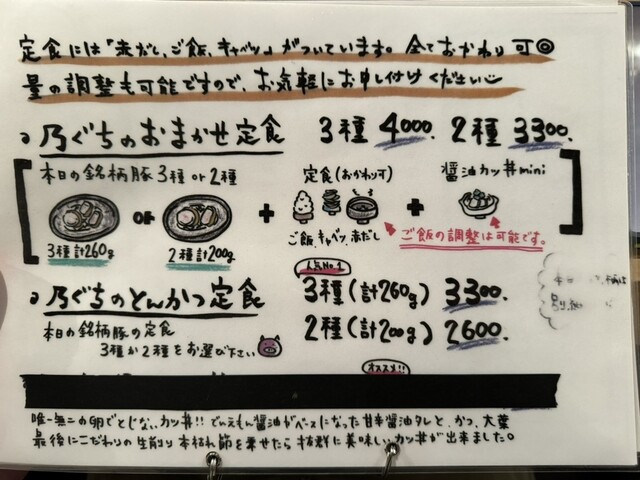 定食には「赤だし、ご飯、キャベツ」がついています。全ておかわり可◎
量の調整も可能ですので、お気軽にお申し付けください
乃ぐちのおまかせ定食 3種 4000. 2種 3300.
本日の銘柄豚3種 or 2種
定食(おかわり可)
醤油カツ丼mini
or + +
3種計260g 2種計200g
ご飯、キャベツ、赤だし
ご飯の調整は可能です。
人気No.1
乃ぐちのとんかつ定食 3種(計260g) 3300.
2種(計200g) 2600.
本日の銘柄豚の定食
3種か2種をお選び下さい
オススメ!!
唯一無二の卵でとじないカツ丼!! でいえもん醤油がベースになった甘辛醤油タレと、かつ、大葉
最後にこだわりの生削り本枯れ節を乗せたら抜群に美味しいカツ丼が出来ました。